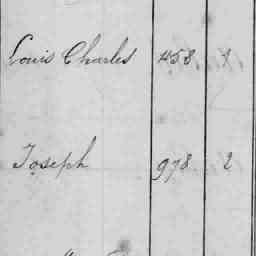 Louis Charles 458 1
Joseph 978 2